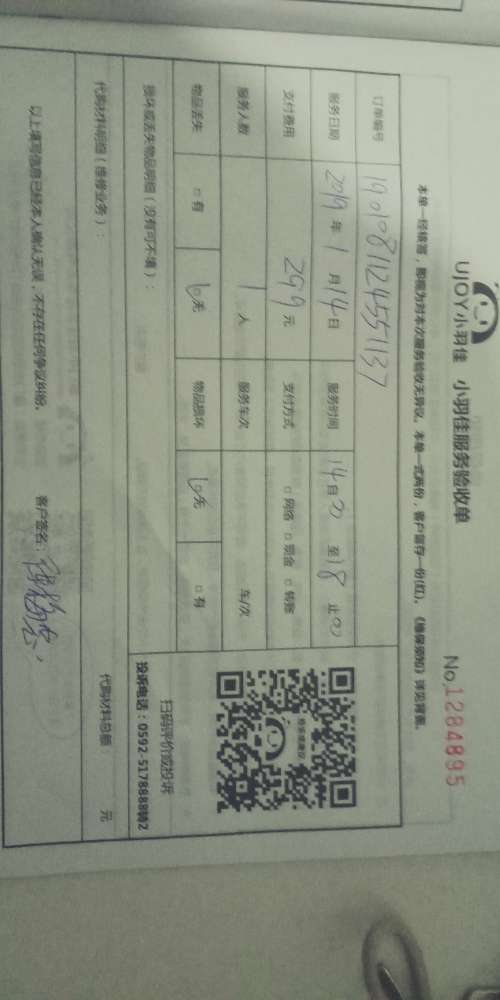 UJOY小羽佳 小羽佳服务验收单
No.1284895
本单一经核签，即视为对本次服务验收无异议。本单一式两份，客户留存一份(红)。《维保须知》详见背面。
订单编号 1901081124551137
服务日期 2019 年 1 月 14 日 服务时间 14 : 00 至 18 : 00 止
支付费用 299 元 支付方式 □ 网络 □ 现金 □ 转账
服务人数 1 人 服务车次 车/次
物品丢失 □ 有 □ 无 物品损坏 □ 无 □ 有
损坏或丢失物品明细（没有可不填）：
扫码评价或投诉
投诉电话：0592-5178888转2
代购材料明细（维修业务）： 代购材料总额： 元
以上填写信息已经本人确认无误，不存在任何争议纠纷。 客户签名：